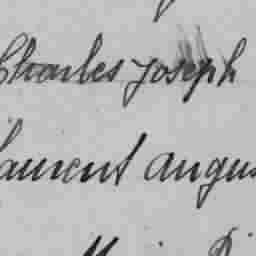 Charles Joseph
Laurent Augus